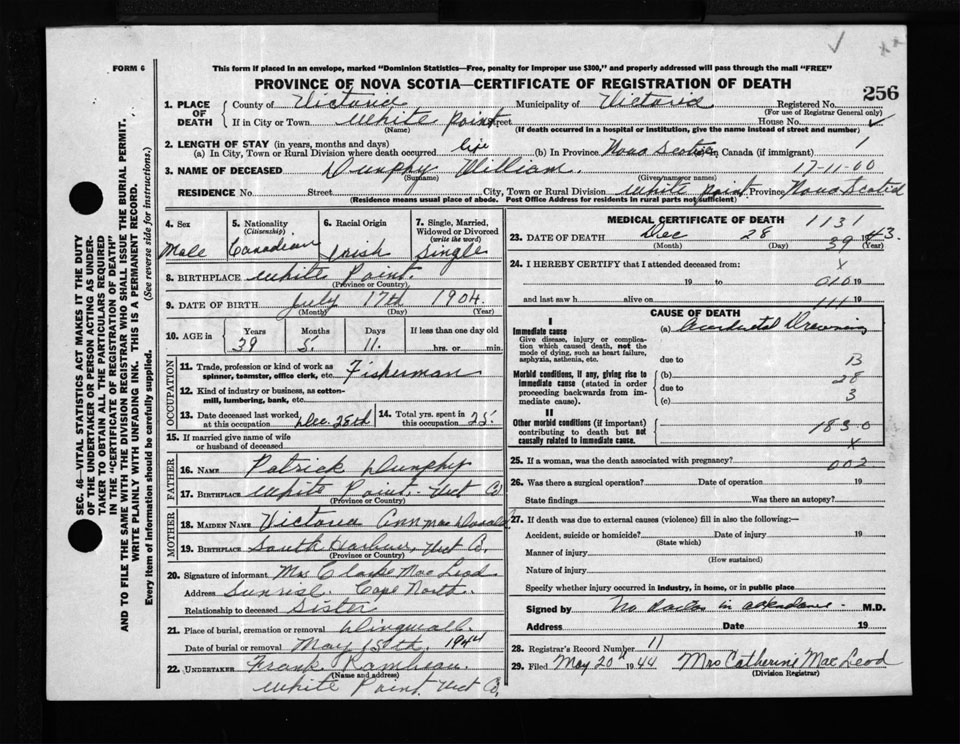 FORM 6
This form if placed in an envelope, marked "Dominion Statistics—Free, penalty for improper use $300," and properly addressed will pass through the mail "FREE"
PROVINCE OF NOVA SCOTIA—CERTIFICATE OF REGISTRATION OF DEATH
256
1. PLACE OF DEATH County of Victoria Municipality of Victoria Registered No.
(For use of Registrar General only)
If in City or Town White Point Street House No.
(Name) (If death occurred in a hospital or institution, give the name instead of street and number)
2. LENGTH OF STAY (in years, months and days)
(a) In City, Town or Rural Division where death occurred life (b) In Province Nova Scotia in Canada (if immigrant) 1
3. NAME OF DECEASED Dunphy William. 17-11-00
(Surname) (Given name or names)
RESIDENCE No. Street City, Town or Rural Division White Point Province Nova Scotia
(Residence means usual place of abode. Post Office Address for residents in rural parts not sufficient)
4. Sex Male
5. Nationality (Citizenship) Canadian
6. Racial Origin Irish
7. Single, Married, Widowed or Divorced (write the word) Single
8. BIRTHPLACE White Point.
(Province or Country)
9. DATE OF BIRTH July 17th 1904.
(Month) (Day) (Year)
10. AGE in Years 39 Months 5. Days 11. If less than one day old hrs. or min.
OCCUPATION
11. Trade, profession or kind of work as spinner, teamster, office clerk, etc. Fisherman
12. Kind of industry or business, as cotton-mill, lumbering, bank, etc.
13. Date deceased last worked at this occupation Dec. 28th
14. Total yrs. spent in this occupation 25.
15. If married give name of wife or husband of deceased
FATHER
16. NAME Patrick Dunphy
17. BIRTHPLACE White Point. Vict Co
(Province or Country)
MOTHER
18. MAIDEN NAME Victoria Ann MacDonald
19. BIRTHPLACE South Harbour, Vict Co.
(Province or Country)
20. Signature of informant Mrs MacLeod
Address Sunrise. Cape North.
Relationship to deceased Sister
21. Place of burial, cremation or removal Dingwall.
Date of burial or removal May 15th, 1944
22. UNDERTAKER Frank
(Name and address)
White Point Vict Co.
MEDICAL CERTIFICATE OF DEATH 1131
23. DATE OF DEATH Dec 28 1943.
39
(Month) (Day) (Year)
24. I HEREBY CERTIFY that I attended deceased from: x
19 to 010 19
and last saw h alive on 111 19
CAUSE OF DEATH
I
Immediate cause (a) Accidental Drowning
Give disease, injury or complication which caused death, not the mode of dying, such as heart failure, asphyxia, asthenia, etc.
due to B
Morbid conditions, if any, giving rise to immediate cause (stated in order proceeding backwards from immediate cause).
(b) 28
due to 3
(c)
II
Other morbid conditions (if important) contributing to death but not causally related to immediate cause.
183-0
x
25. If a woman, was the death associated with pregnancy? 002
26. Was there a surgical operation? Date of operation 19
State findings Was there an autopsy?
27. If death was due to external causes (violence) fill in also the following:—
Accident, suicide or homicide? Date of injury 19
(State which)
Manner of injury
(How sustained)
Nature of injury
Specify whether injury occurred in industry, in home, or in public place
Signed by No doctor in attendance - M.D.
Address Date 19
28. Registrar's Record Number 11
29. Filed May 20th 1944 Mrs Catherine MacLeod
(Division Registrar)
SEC. 46—VITAL STATISTICS ACT MAKES IT THE DUTY
OF THE UNDERTAKER OR PERSON ACTING AS UNDER-
TAKER TO OBTAIN ALL THE PARTICULARS REQUIRED
IN THE "CERTIFICATE OF REGISTRATION OF DEATH"
AND TO FILE THE SAME WITH THE DIVISION REGISTRAR WHO SHALL ISSUE THE BURIAL PERMIT.
WRITE PLAINLY WITH UNFADING INK. THIS IS A PERMANENT RECORD.
Every item of information should be carefully supplied. (See reverse side for instructions.)